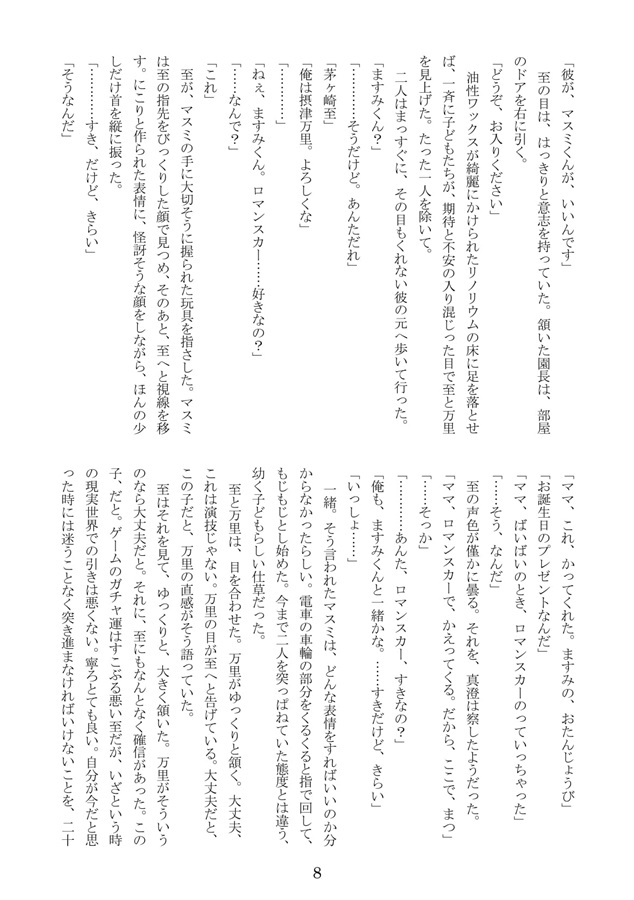 「彼が、マスミくんが、いいんです」
　至の目は、はっきりと意志を持っていた。頷いた園長は、部屋
のドアを右に引く。
「どうぞ、お入りください」
　油性ワックスが綺麗にかけられたリノリウムの床に足を落とせ
ば、一斉に子どもたちが、期待と不安の入り混じった目で至と万里
を見上げた。たった一人を除いて。
　二人はまっすぐに、その目もくれない彼の元へ歩いて行った。
「ますみくん？」
「…………そうだけど。あんただれ」
「茅ヶ崎至」
「俺は摂津万里。よろしくな」
「…………」
「ねぇ、ますみくん。ロマンスカー……好きなの？」
「……なんで？」
「これ」
　至が、マスミの手に大切そうに握られた玩具を指さした。マスミ
は至の指先をびっくりした顔で見つめ、そのあと、至へと視線を移
す。にこりと作られた表情に、怪訝そうな顔をしながら、ほんの少
しだけ首を縦に振った。
「…………すき、だけど、きらい」
「そうなんだ」
「ママ、これ、かってくれた。ますみの、おたんじょうび」
「お誕生日のプレゼントなんだ」
「ママ、ばいばいのとき、ロマンスカーのっていっちゃった」
「……そう、なんだ」
　至の声色が僅かに曇る。それを、真澄は察したようだった。
「ママ、ロマンスカーで、かえってくる。だから、ここで、まつ」
「……そっか」
「…………あんた、ロマンスカー、すきなの？」
「俺も、ますみくんと一緒かな。……すきだけど、きらい」
「いっしょ……」
　一緒。そう言われたマスミは、どんな表情をすればいいのか分
からなかったらしい。電車の車輪の部分をくるくると指で回して、
もじもじとし始めた。今まで二人を突っぱねていた態度とは違う、
幼く子どもらしい仕草だった。
　至と万里は、目を合わせた。万里がゆっくりと頷く。大丈夫、
これは演技じゃない。万里の目が至へと告げている。大丈夫だと、
この子だと、万里の直感がそう語っていた。
　至はそれを見て、ゆっくりと、大きく頷いた。万里がそういう
のなら大丈夫だと。それに、至にもなんとなく確信があった。この
子、だと。ゲームのガチャ運はすこぶる悪い至だが、いざという時
の現実世界での引きは悪くない。寧ろとても良い。自分が今だと思
った時には迷うことなく突き進まなければいけないことを、二十
8